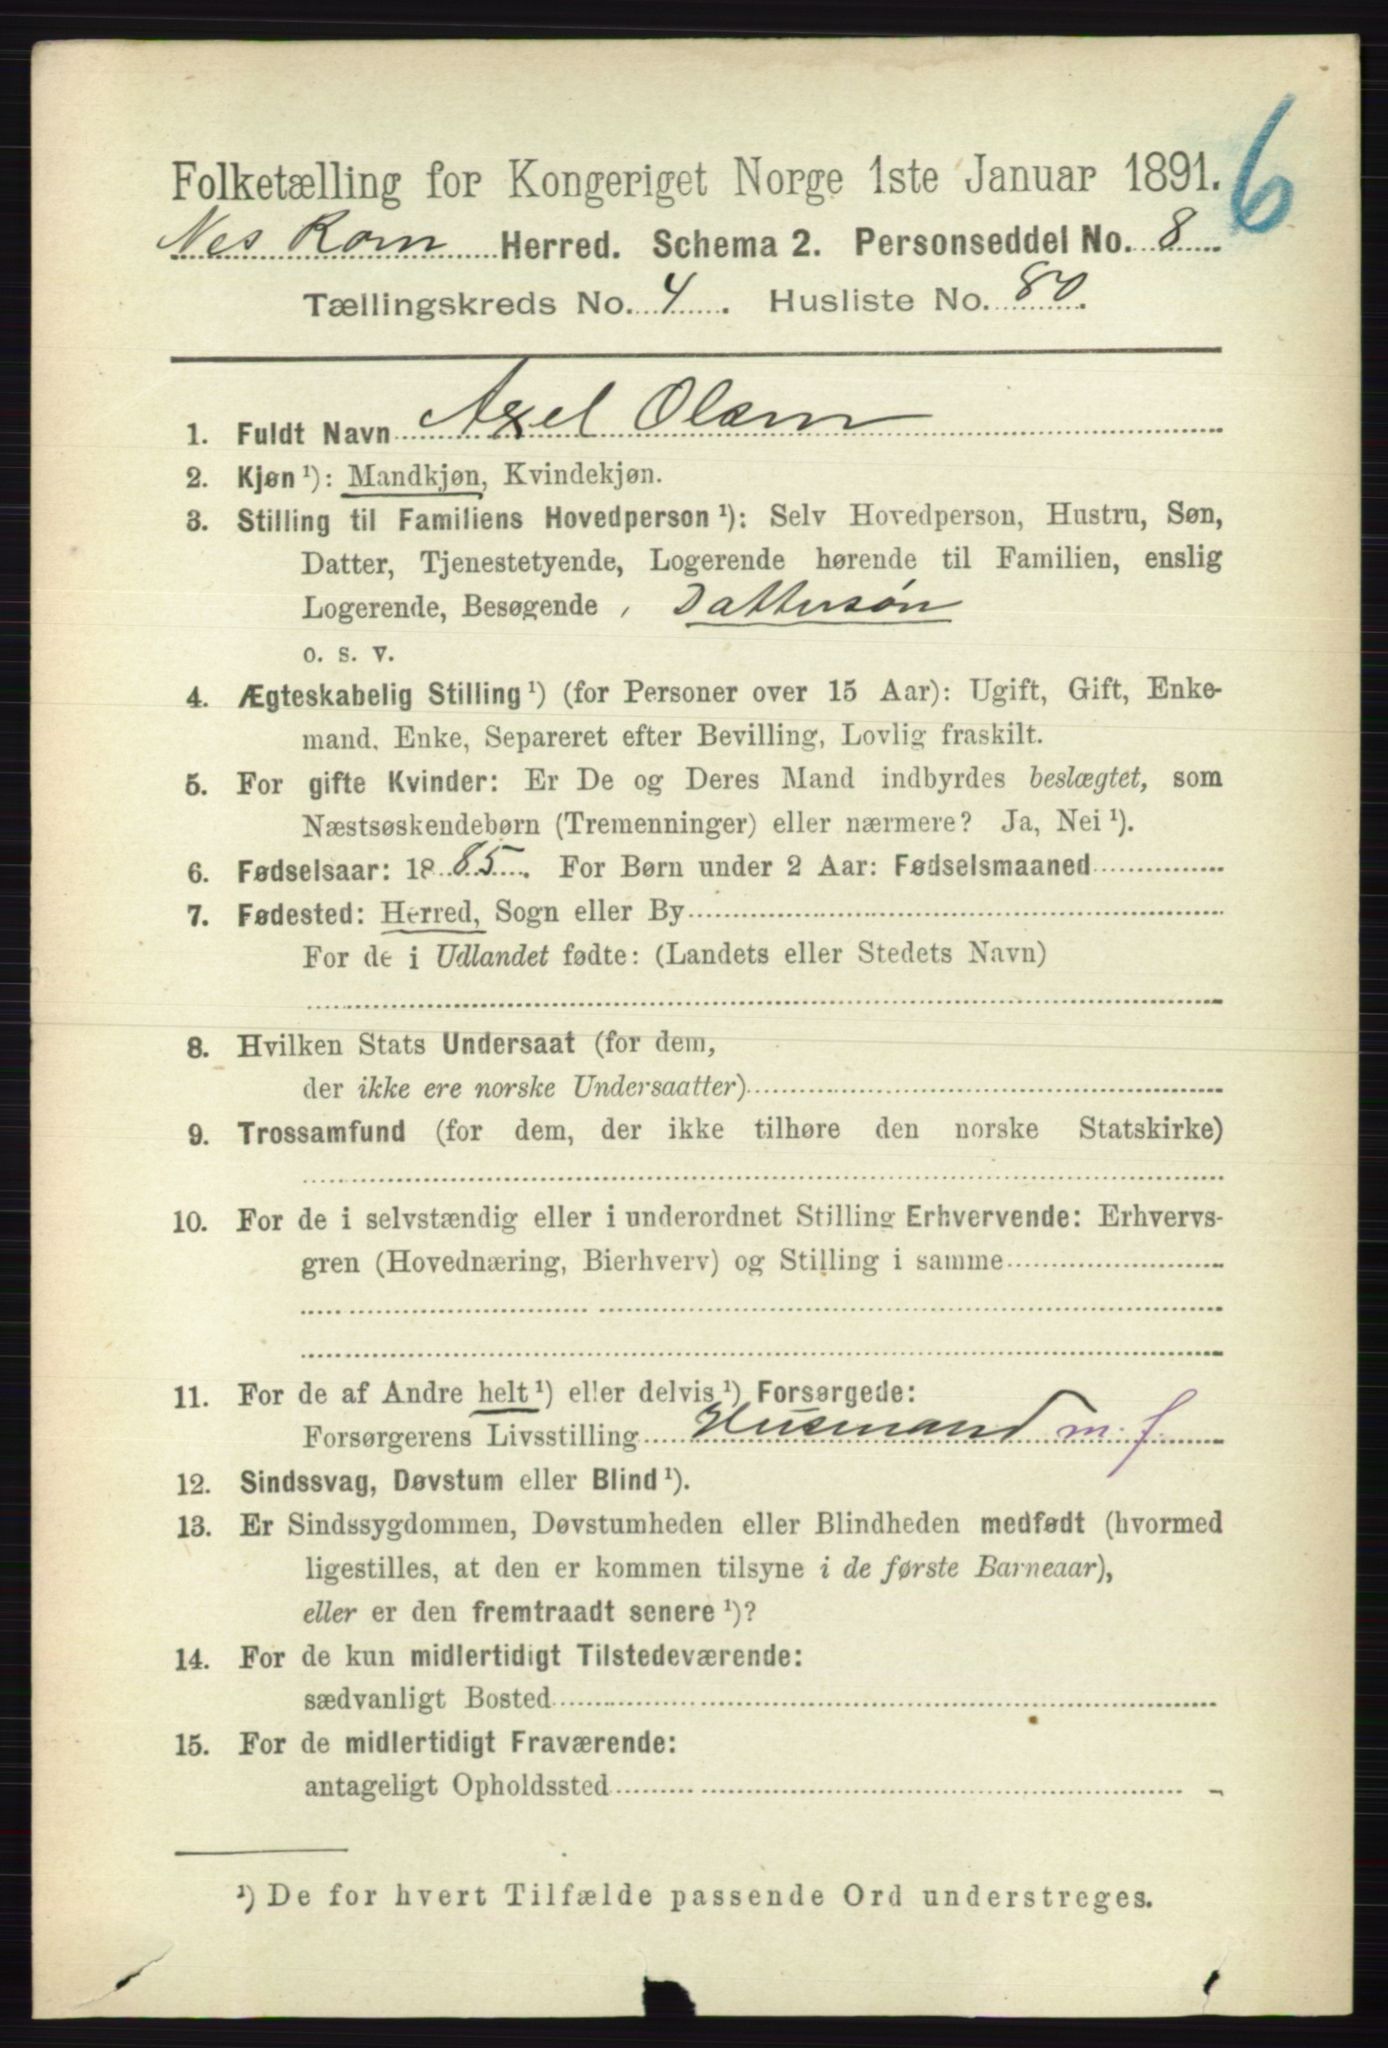 6
Folketælling for Kongeriget Norge 1ste Januar 1891.
Nes Kom Herred. Schema 2. Personseddel No. 8
Tællingskreds No. 4. Husliste No. 80.
1. Fuldt Navn Axel Olsen
2. Kjøn ¹): Mandkjøn, Kvindekjøn.
3. Stilling til Familiens Hovedperson ¹): Selv Hovedperson, Hustru, Søn,
Datter, Tjenestetyende, Logerende hørende til Familien, enslig
Logerende, Besøgende , Dattersøn
o. s. v.
4. Ægteskabelig Stilling ¹) (for Personer over 15 Aar): Ugift, Gift, Enke-
mand, Enke, Separeret efter Bevilling, Lovlig fraskilt.
5. For gifte Kvinder: Er De og Deres Mand indbyrdes beslægtet, som
Næstsøskendebørn (Tremenninger) eller nærmere? Ja, Nei ¹).
6. Fødselsaar: 1885. For Børn under 2 Aar: Fødselsmaaned
7. Fødested: Herred, Sogn eller By
For de i Udlandet fødte: (Landets eller Stedets Navn)
8. Hvilken Stats Undersaat (for dem,
der ikke ere norske Undersaatter)
9. Trossamfund (for dem, der ikke tilhøre den norske Statskirke)
10. For de i selvstændig eller i underordnet Stilling Erhvervende: Erhvervs-
gren (Hovednæring, Bierhverv) og Stilling i samme
11. For de af Andre helt ¹) eller delvis ¹) Forsørgede:
Forsørgerens Livsstilling Husmand m. j.
12. Sindssvag, Døvstum eller Blind ¹).
13. Er Sindssygdommen, Døvstumheden eller Blindheden medfødt (hvormed
ligestilles, at den er kommen tilsyne i de første Barneaar),
eller er den fremtraadt senere ¹)?
14. For de kun midlertidigt Tilstedeværende:
sædvanligt Bosted
15. For de midlertidigt Fraværende:
antageligt Opholdssted
¹) De for hvert Tilfælde passende Ord understreges.